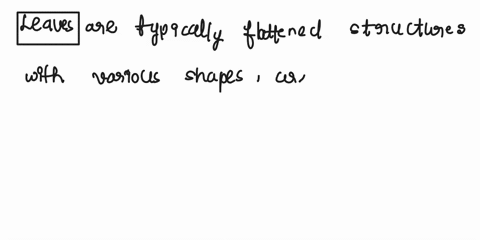 Leaves are typically flattened structures
with various shapes,